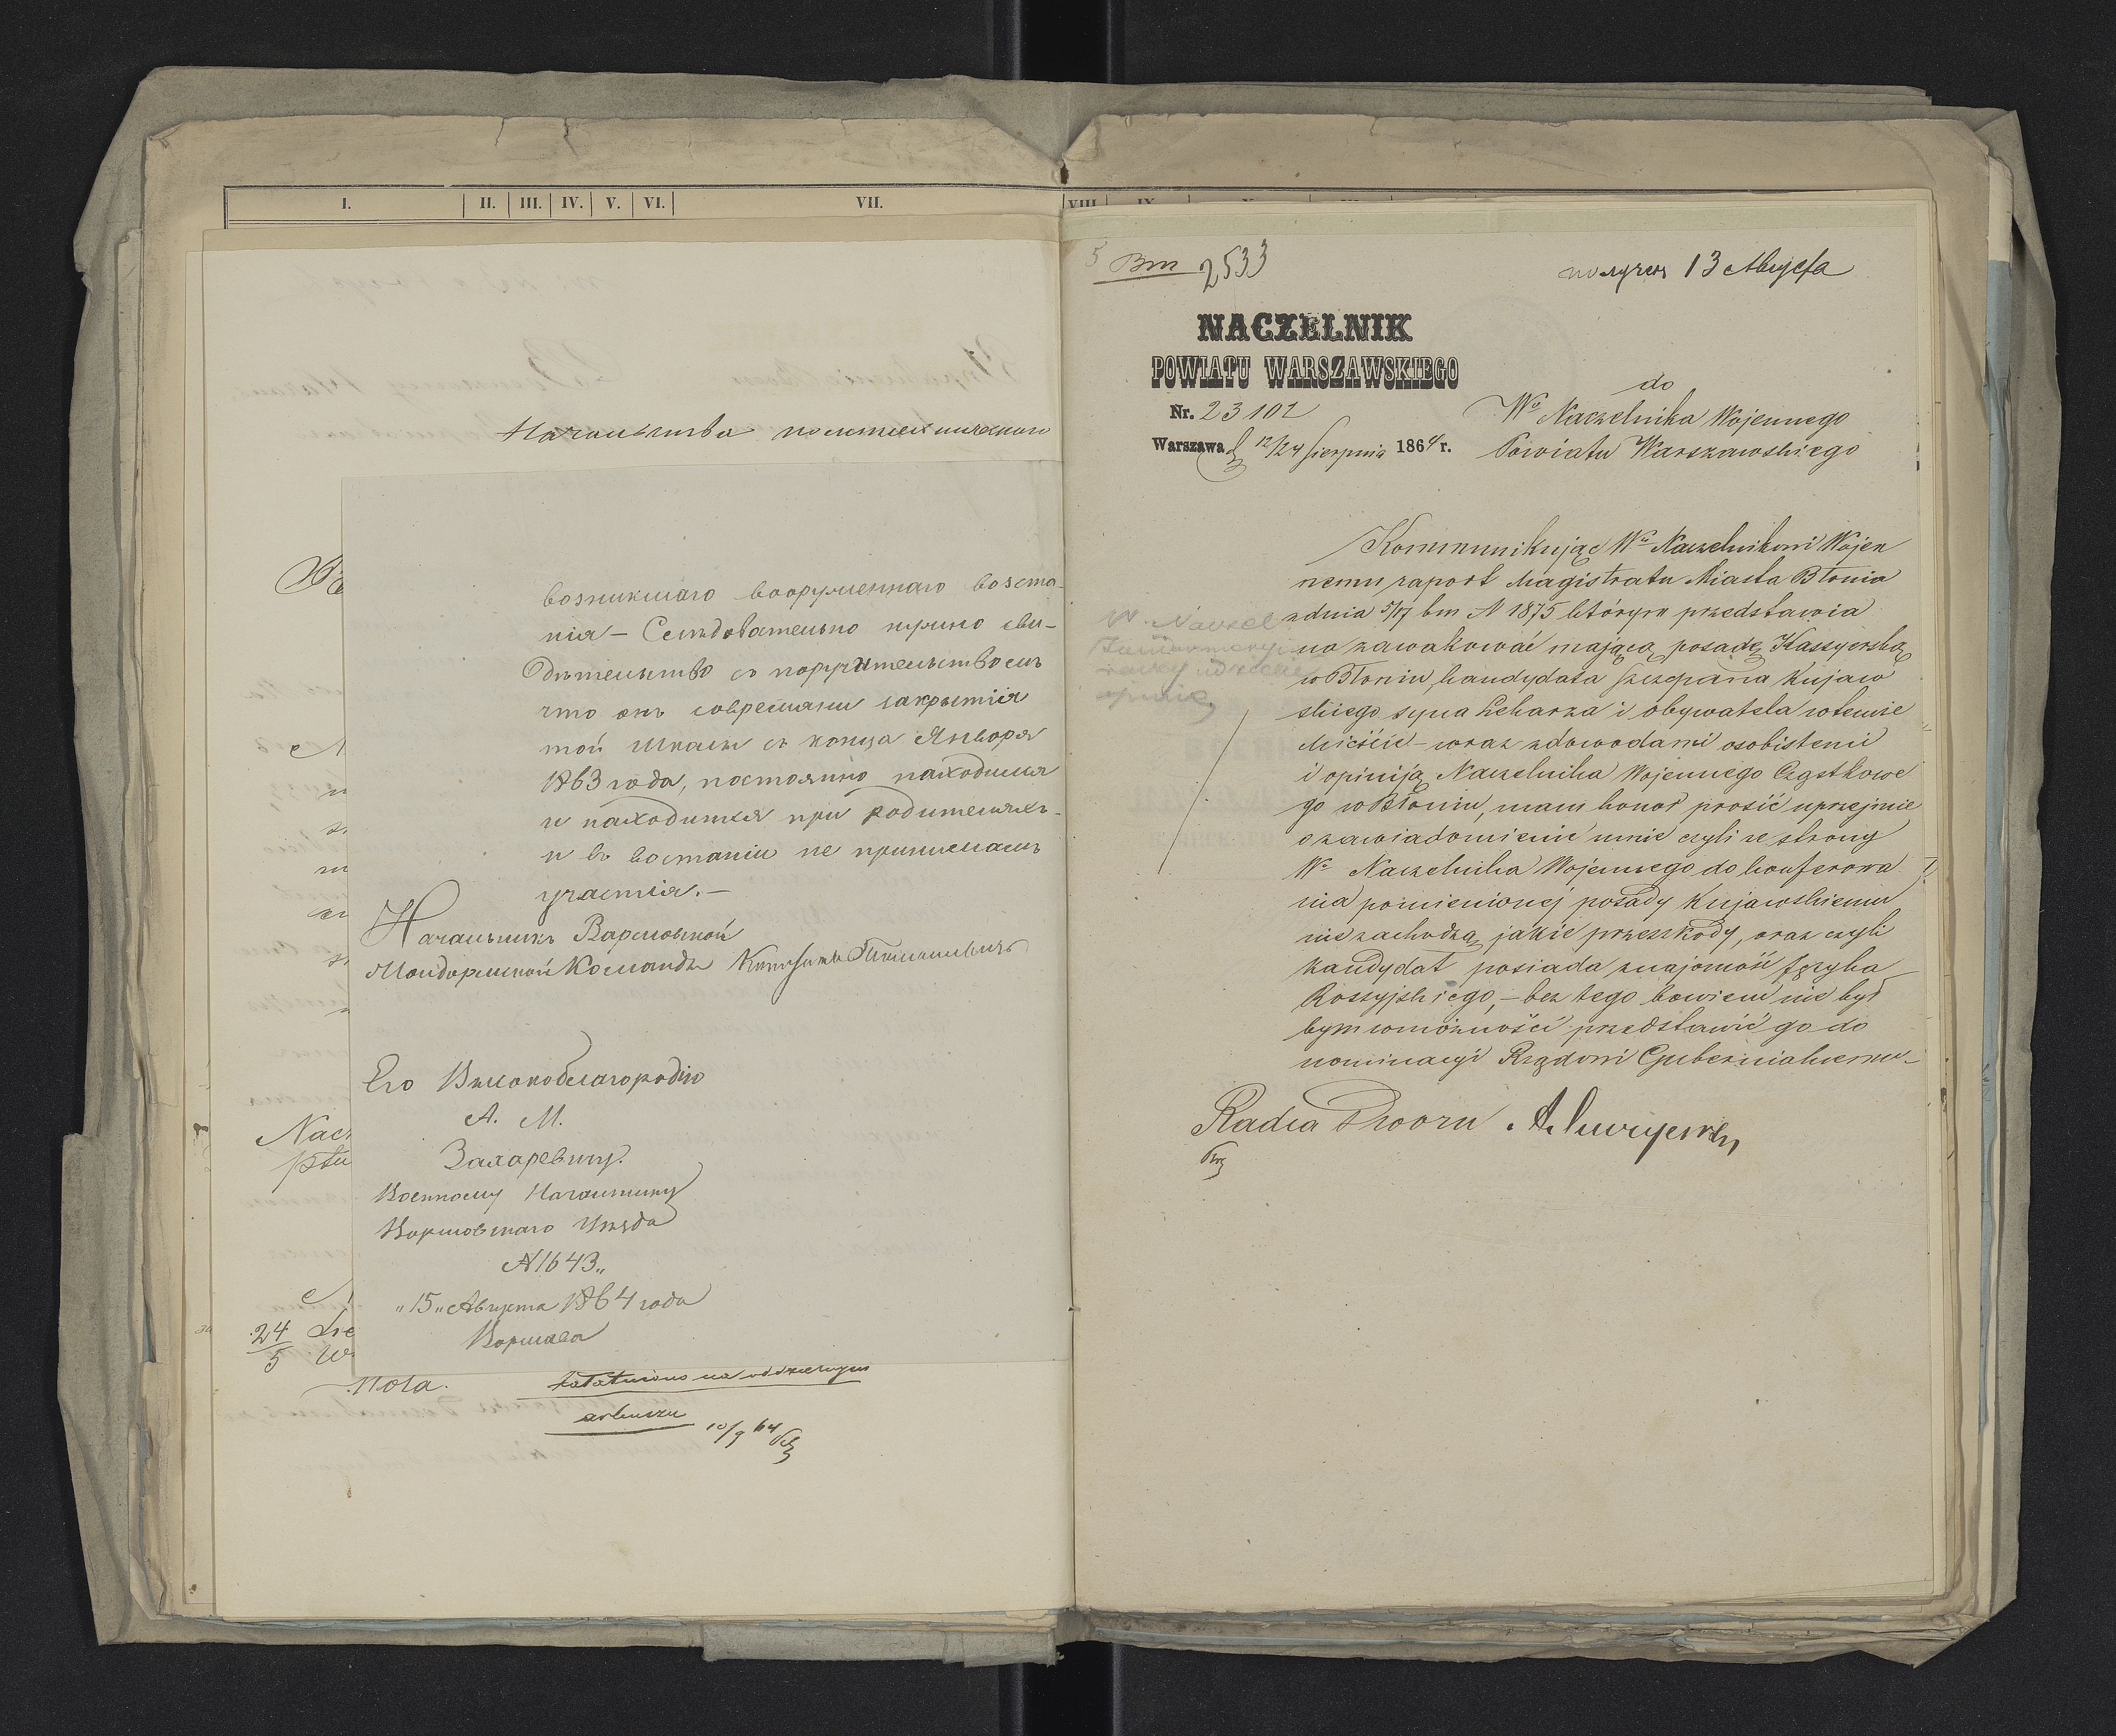 I. II. III. IV. V. VI. VII.
возникшаго вооруженнаго возста-
нія – Следовательно нужно сви-
дѣтельство съ поручительствомъ
что онъ современи закрытія
той школы съ конца Января
1863 года, постоянно находился
и находится при родителяхъ-
и въ востаніи не принималъ
участія.–
Начальникъ Варшавской
Жандармской Команды Капитанъ
Его Высокоблагородію
А. М.
Захаревичу.
Военному Начальнику
Варшавскаго Уѣзда
№ 1643„
„15„ Августа 1864 года
Варшава
24
5
Nota.
załatwiono na oddzielnym
arkuszu 10/9 64
VIII. IX.
Bm 2533
получен 13 Августа
NACZELNIK
POWIATU WARSZAWSKIEGO
Nr. 23102
Warszawa d 12/24 Sierpnia 1864 r.
do
Wo Naczelnika Wojennego
Powiatu Warszawskiego
Kommunikując Wu Naczelnikowi Wojen
nemu raport Magistratu Miasta Błonia
z dnia 5/17 bm N 1875 którym przedstawia
na zawakować mającą posadę Kassyerską
w Błoniu, kandydata Szczepana Kujaw
skiego syna Lekarza i obywatela w temże
Mieście – wraz z dowodami osobistemi
i opiniją Naczelnika Wojennego Cząstkowe
go w Błoniu, mam honor prosić uprzejmie
o zawiadomienie mnie czyli ze strony
Wo Naczelnika Wojennego do konferowa
nia pomienionej posady Kujawskiemu
nie zachodzą jakie przeszkody, oraz czyli
kandydat posiada znajomość Języka
Rossyjskiego, – bez tego bowiem nie był
bym w możności przedstawić go do
nominacyi Rządowi Gubernialnemu –
Radca Dworu